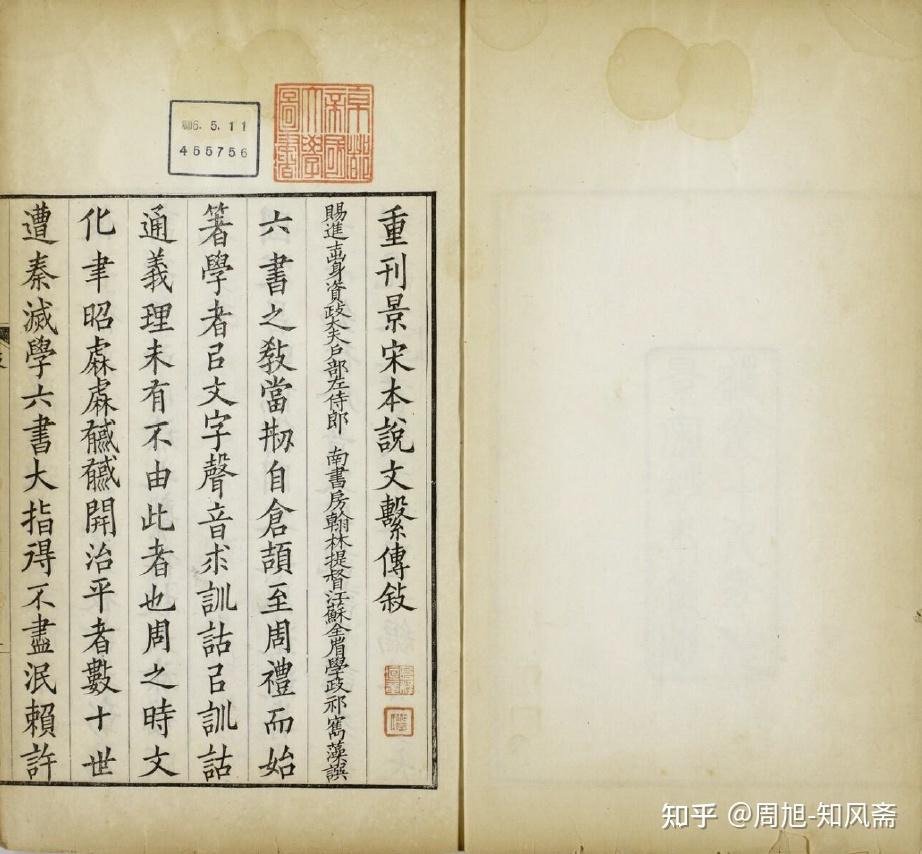 重刊景宋本說文繫傳敍
賜進士出身資政大夫戶部左侍郎 南書房翰林提督江蘇全省學政祁寯藻譔
六書之敎當刱自倉頡至周禮而始
箸學者㠯文字聲音求訓詁㠯訓詁
通義理未有不由此者也周之時文
化聿昭彪彪彧彧開治平者數十世
遭秦滅學六書大指得不盡泯賴許
京都帝國大學圖書
5. 11
455756
知乎 @周旭-知风斋